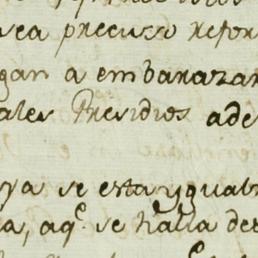 sea precusso refor
gan a embarazar
ales Presidios ade
ya se esta ygual
a, aq.e se halla de